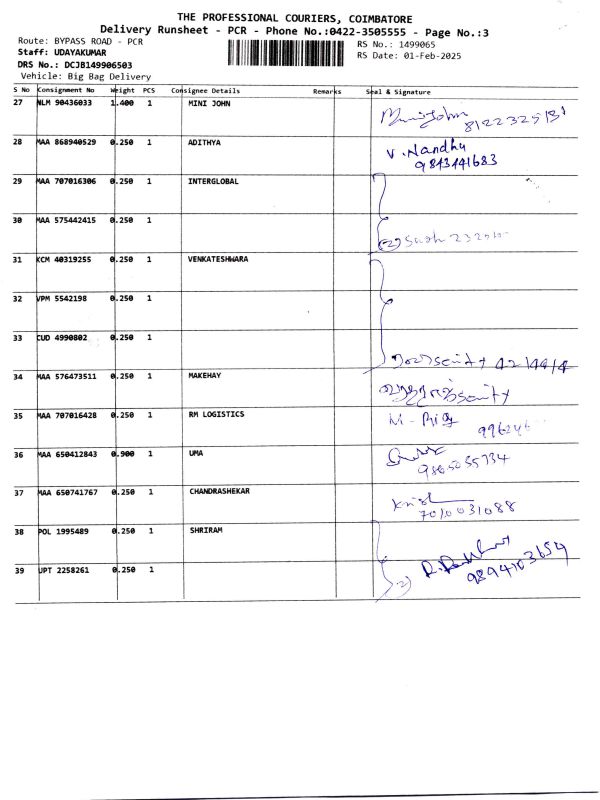 THE PROFESSIONAL COURIERS, COIMBATORE
Delivery Runsheet - PCR - Phone No.:0422-3505555 - Page No.:3
Route: BYPASS ROAD - PCR
RS No.: 1499065
Staff: UDAYAKUMAR
RS Date: 01-Feb-2025
DRS No.: DCJB149906503
Vehicle: Big Bag Delivery
S No Consignment No Weight PCS Consignee Details Remarks Seal & Signature
27 NLM 90436033 1.400 1 MINI JOHN
28 MAA 868940529 0.250 1 ADITHYA V. Nandhu
9843441683
29 MAA 707016306 0.250 1 INTERGLOBAL
30 MAA 575442415 0.250 1
31 KCM 40319255 0.250 1 VENKATESHWARA
32 VPM 5542198 0.250 1
33 CUD 4990802 0.250 1
34 MAA 576473511 0.250 1 MAKEHAY
35 MAA 707016428 0.250 1 RM LOGISTICS
36 MAA 650412843 0.900 1 UMA
37 MAA 650741767 0.250 1 CHANDRASHEKAR
7010031088
38 POL 1995489 0.250 1 SHRIRAM
39 UPT 2258261 0.250 1
9894103654